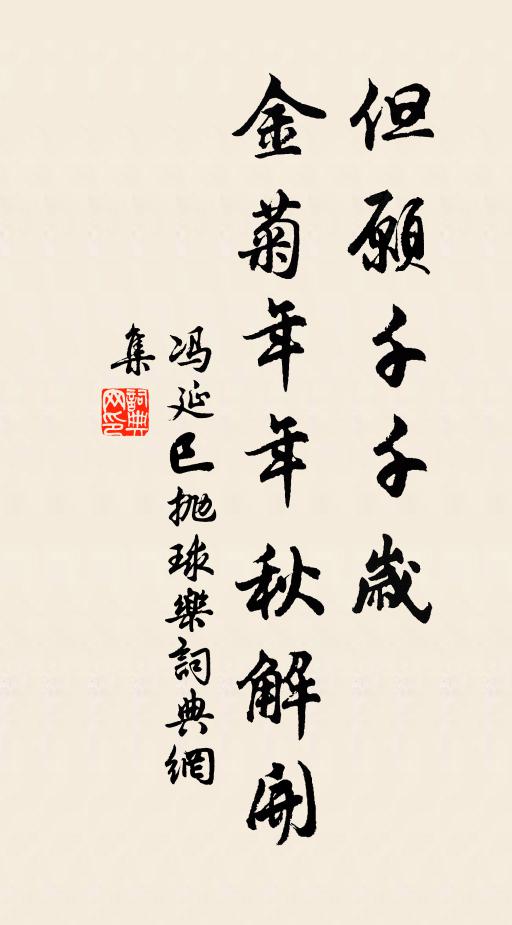 但願千千歲
金菊年年秋解開
冯延巳抛球樂詞典網
集
詞典
网印